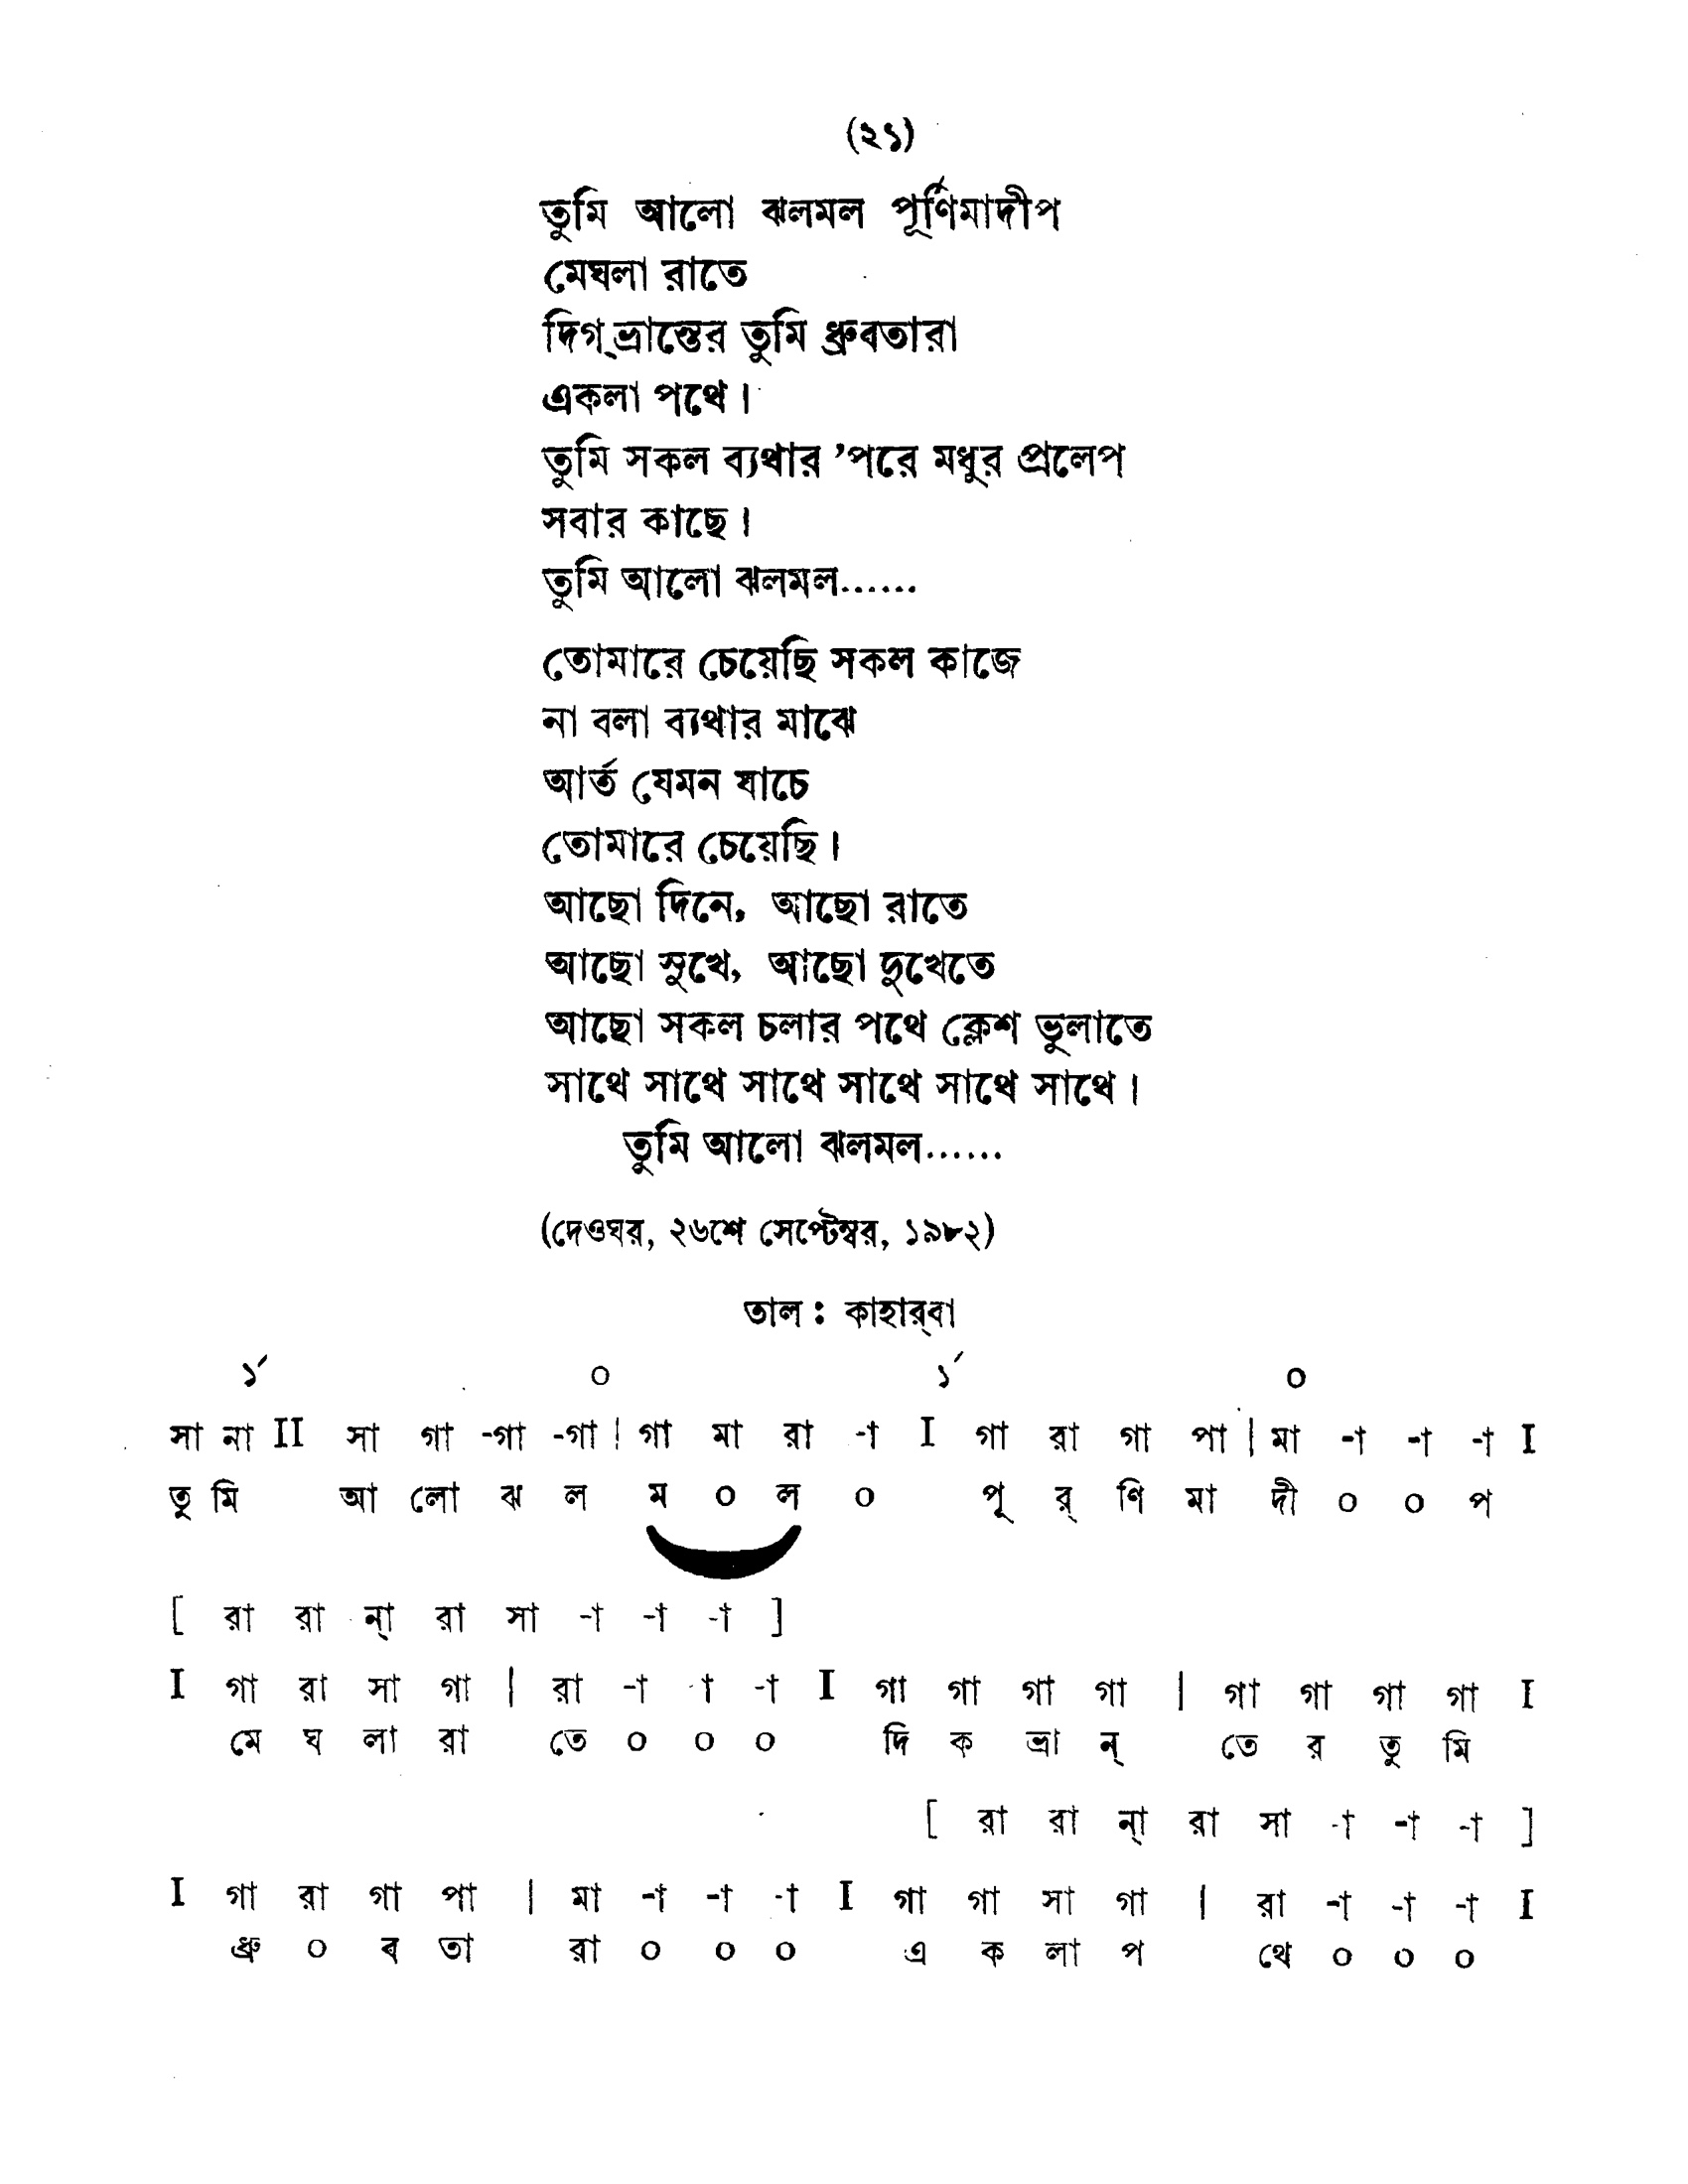 (২১)
তুমি আলো ঝলমল পূর্ণিমাদীপ
মেঘলা রাতে
দিগ্‌ভ্রান্তের তুমি ধ্রুবতারা
একলা পথে।
তুমি সকল ব্যথার ’পরে মধুর প্রলেপ
সবার কাছে।
তুমি আলো ঝলমল......
তোমারে চেয়েছি সকল কাজে
না বলা ব্যথার মাঝে
আর্ত যেমন যাচে
তোমারে চেয়েছি।
আছো দিনে, আছো রাতে
আছো সুখে, আছো দুখেতে
আছো সকল চলার পথে ক্লেশ ভুলাতে
সাথে সাথে সাথে সাথে সাথে সাথে।
তুমি আলো ঝলমল......
(দেওঘর, ২৬শে সেপ্টেম্বর, ১৯৮২)
তাল : কাহার্‌বা
১´ ০ ১´ ০
সা না II সা গা -গা -গা | গা মা রা -া I গা রা গা পা | মা -া -া -া I
তু মি আ লো ঝ ল ম ০ ল ০ পূ র্ ণি মা দী ০ ০ প
[ রা রা ন্া রা সা -া -া -া ]
I গা রা সা গা | রা -া -া -া I গা গা গা গা | গা গা গা গা I
মে ঘ লা রা তে ০ ০ ০ দি ক ভ্রা ন্ তে র তু মি
[ রা রা ন্া রা সা -া -া -া ]
I গা রা গা পা | মা -া -া -া I গা গা সা গা | রা -া -া -া I
ধ্রু ০ ব তা রা ০ ০ ০ এ ক লা প থে ০ ০ ০